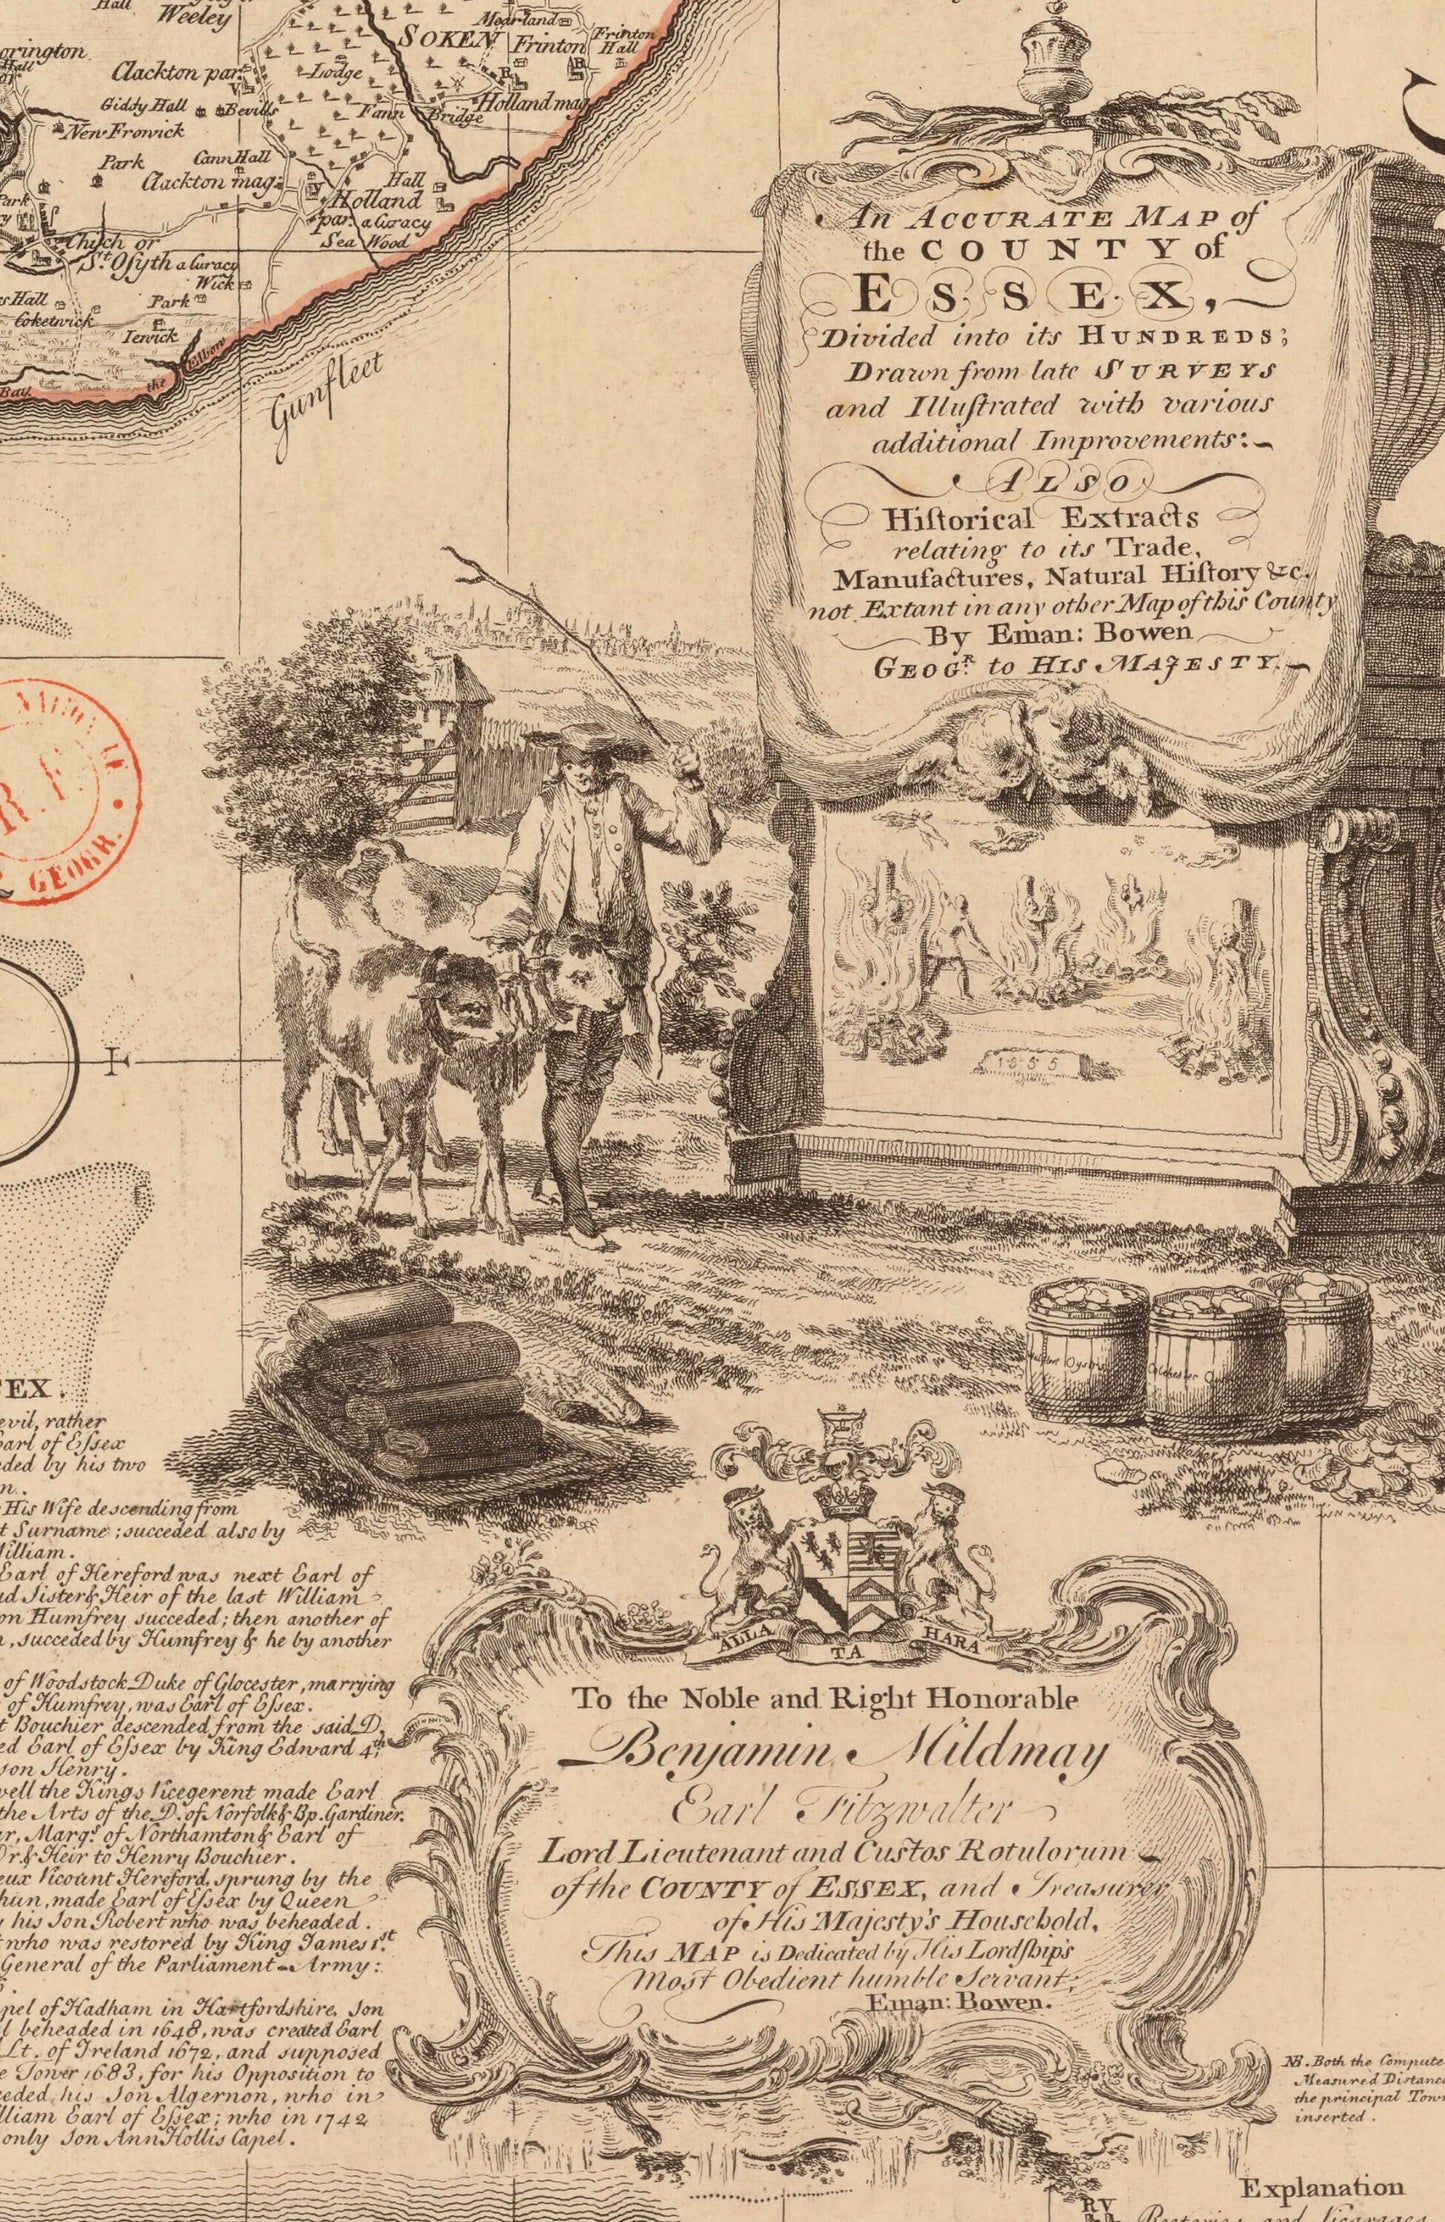 Hall
Weeley
SOKEN
Moorland
Frinton
Frinton
Hall
Clackton par.
Lodge
Giddy Hall
Bevills
Fann
Bridge
Holland mag
New Frowick
Park
Cann Hall
Clackton mag:
Hall
Holland
par. a Curacy
Sea Wood
Chich or
St. Osyth a Curacy
Wick
Park
Coketwick
Iewick
Bay.
the Elbow
Gunfleet
An ACCURATE MAP of
the COUNTY of
ESSEX,
Divided into its HUNDREDS;
Drawn from late SURVEYS
and Illuſtrated with various
additional Improvements:
ALSO
Hiſtorical Extracts
relating to its Trade,
Manufactures, Natural Hiſtory &c.
not Extant in any other Map of this County
By Eman: Bowen
GEOGR. to HIS MAJESTY.
GEOGR.
R.F.
1555
Oysters
Colchester
EX.
evil, rather
Earl of Eſsex
eded by his two
n.
His Wife descending from
t Surname; succeded also by
William.
Earl of Hereford was next Earl of
nd Sister & Heir of the last William
on Humfrey succeded; then another of
n, succeded by Humfrey & he by another
of Woodstock Duke of Glocester, marrying
of Humfrey, was Earl of Eſsex.
t Bouchier descended from the said D.
ed Earl of Eſsex by King Edward 4th,
son Henry.
well the Kings Vicegerent made Earl
the Arts of the D. of Norfolk & Bp. Gardiner.
ar, Marqs. of Northamton & Earl of
Dr. & Heir to Henry Bouchier.
eux Vicount Hereford, sprung by the
hun, made Earl of Eſsex by Queen
y his Son Robert who was beheaded.
t who was restored by King James 1st.
General of the Parliament-Army:
pel of Hadham in Hartfordshire, Son
l beheaded in 1648, was created Earl
Lt. of Ireland 1672, and supposed
e Tower 1683, for his Opposition to
ceded his Son Algernon, who in
lliam Earl of Eſsex; who in 1742
only Son Ann Hollis Capel.
ALLA TA HARA
To the Noble and Right Honorable
Benjamin Mildmay
Earl Fitzwalter
Lord Lieutenant and Custos Rotulorum
of the COUNTY of ESSEX, and Treasurer
of His Majesty's Household,
This MAP is Dedicated by His Lordſhip's
Most Obedient humble Servant,
Eman: Bowen.
NB. Both the Compute
Measured Distance
the principal Tow
inserted.
Explanation
RV
Rectories and Vicarages